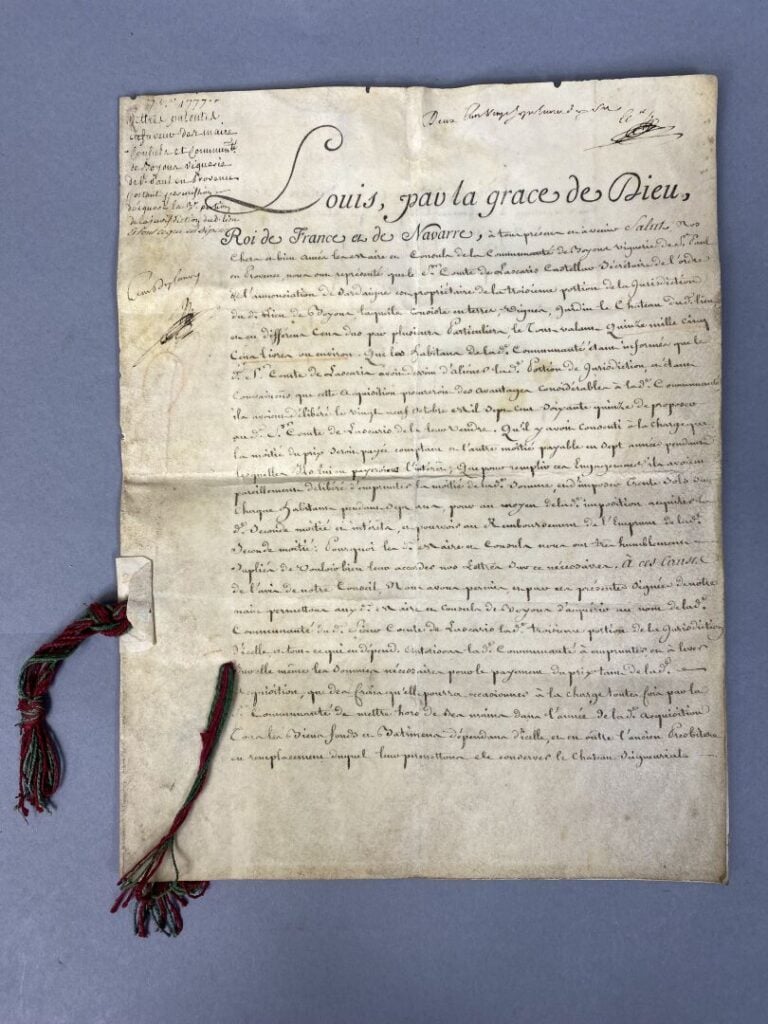 1777
Lettres patentes
en faveur des maire
Consuls et Communté
de Boyon viguerie
de St. Paul en Provence
portant permission
d'acquérir la 3e. portion
de la jurisdiction dud. lieu
Louis, par la grace de Dieu,
Roi de France et de Navarre, à tous présens et à venir Salut. Nos
Chers et bien Amés les Maire et Consuls de la Communauté de Boyon Viguerie de St. Paul
en Provence, nous ont représenté que le Sr. Comte de Lascaris Castellar Sécrétaire de l'ordre
de l'annonciation de Sardaigne copropriétaire de la troisieme portion de la Jurisdiction
du d. Lieu de Boyon, laquelle consiste en terres, Vignes, Jardin, le Chateau du d. lieu
et en différens Cens dus par plusieurs Particuliers, le Tout valant Quinze mille Cinq
Cens livres ou environ. Que les Habitans de lad. Communauté étant informés que le
d. Sr. Comte de Lascaris avoit dessein d'aliéner lad. Portion de Jurisdiction, et étant
Convaincus que cette Acquisition procureroit des Avantages Considérables à lad. Communauté
ils avoient délibéré le vingt neuf Octobre Mil Sept Cent Soixante quinze de proposer
au d. Sr. Comte de Lascaris de la leur Vendre. Qu'il y avoit Consenti à la Charge que
la moitié du prix seroit payée comptant et l'autre moitié payable en Sept années pendant
lesquelles Ils lui en payeroient l'intérêt; Que pour remplir ces Engagemens ils avoient
pareillement délibéré d'emprunter la moitié de lad. Somme, et d'imposer Trente Sols sur
Chaque Habitant pendant Sept ans, pour au moyen de lad. imposition acquitter la
d. Seconde moitié et intérêts, et pourvoir au Remboursement de l'Emprunt de lad.
Seconde moitié: Pourquoi les d. Maire et Consuls nous ont très humblement
Suplié de Vouloir bien leur accorder nos Lettres sur ce nécessaires. À ces Causes,
de l'avis de notre Conseil, Nous avons permis et par ces présentes Signées de notre
main permettons aux d. Maire et Consuls de Boyon d'acquérir au nom de lad.
Communauté du d. Sieur Comte de Lascaris lad. troisieme portion de la Jurisdiction
d'icelle et tout ce qui en dépend. Autorisons lad. Communauté à emprunter et à lever
sur elle même les Sommes nécessaires pour le payement du prix tant de lad.
Acquisition, que des frais qu'elle pourra occasionner à la charge toutes fois par la
d. Communauté de mettre hors de ses mains dans l'année de lad. Acquisition
tous les Biens fonds et Batimens dépendans d'icelle, et en outre l'ancien Presbitere
en remplacement duquel leur permettons de conserver le Chateau Seigneurial